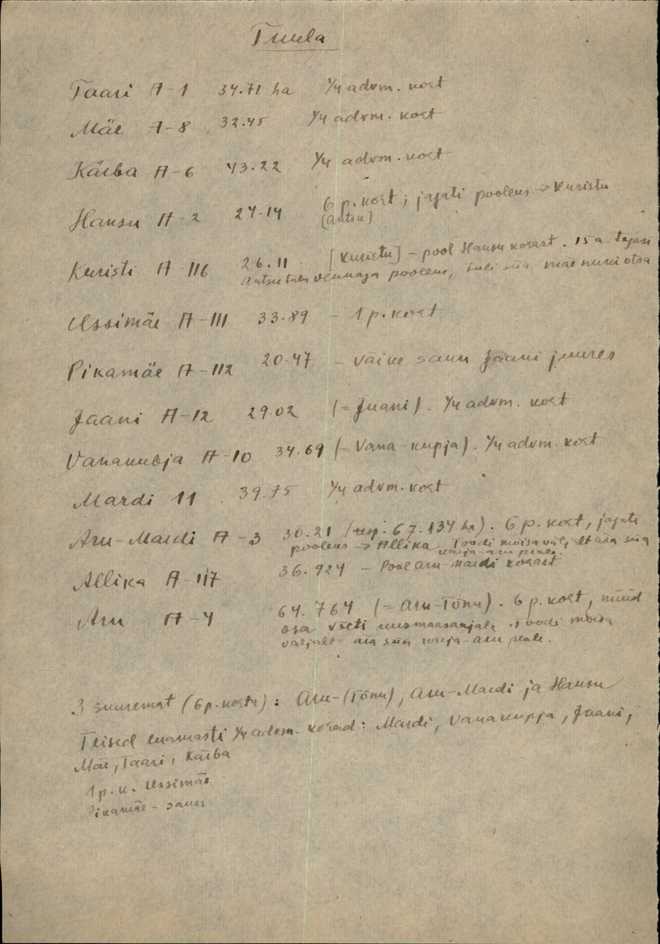 Tuula
Taari A-1 34.71 ha 1/4 adom. koht
Mäe A-8 32.45 1/4 adom. koht
Käeba A-6 43.22 1/4 adom. koht
Hansu A-2 27.14 6 p. koht; jagati pooleks → Kuristu
(Antsu)
Kuristi A-116 26.11 [Kuristu] - pool Hansu kohast. 15 a tagasi
pooleks, tuli siia otsa
Ussimäe A-111 33.89 - 1 p. koht
Pikamäe A-112 20.47 - väike saun Jaani juures
Jaani A-12 29.02 (= Juani). 1/4 adom. koht
Vanakubja A-10 34.69 (- Vana-kupja). 1/4 adom. koht
Mardi 11 39.75 1/4 adom. koht
Aru-Mardi A-3 30.21 (67.134 ha). 6 p. koht, jagati
pooleks → Allika toodi mõisa välj. osa siia
-aru peale
Allika A-117 36.924 - Pool Aru-Mardi kohast
Aru A-4 64.764 (= Aru-Tõnu). 6 p. koht, nüüd
osa võeti toodi mõisa
väljalt osa siia -aru peale.
3 suuremat (6 p. kohta): Aru-(Tõnu), Aru-Mardi ja Hansu
Teised enamasti 1/4 adom. kohad: Mardi, Vanakupja, Jaani,
Mäe, Taari, Käeba
1 p. k. Ussimäe
Pikamäe - saun